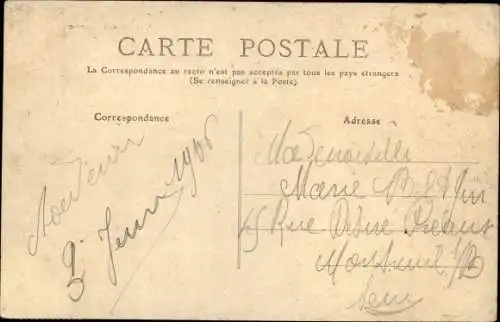 CARTE POSTALE
La Correspondance au recto n'est pas acceptée par tous les pays étrangers
(Se renseigner à la Poste)
Correspondance
Adresse
1906
Mademoiselle
Marie
15 Rue
Montreuil s/B
Seine